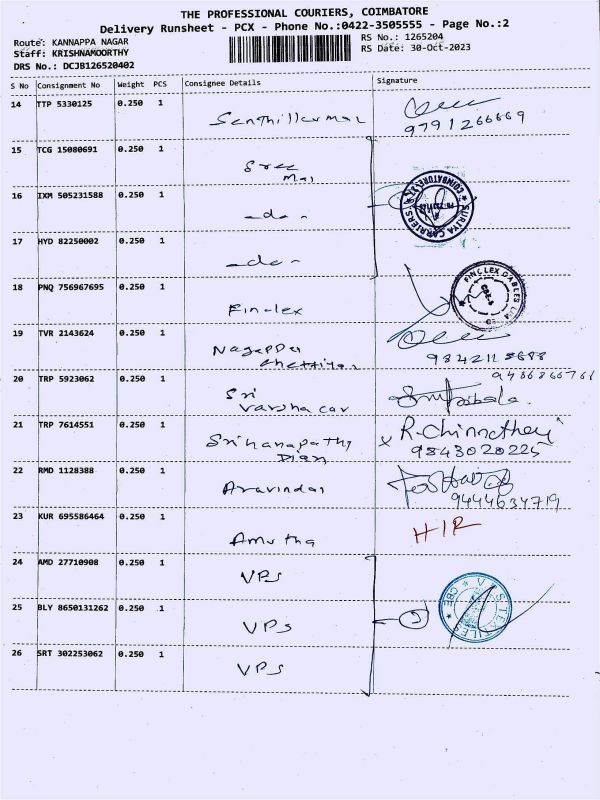 THE PROFESSIONAL COURIERS, COIMBATORE
Delivery Runsheet - PCX - Phone No.:0422-3505555 - Page No.:2
Route: KANNAPPA NAGAR
Staff: KRISHNAMOORTHY
DRS No.: DCJB126520402
RS No.: 1265204
RS Date: 30-Oct-2023
S No Consignment No Weight PCS Consignee Details Signature
14 TTP 5330125 0.250 1
9791266669
15 TCG 15080691 0.250 1
Sree
Mai
16 IXM 505231588 0.250 1
- do -
SURIYA CARRIERS
17 HYD 82250002 0.250 1
- do -
18 PNQ 756967695 0.250 1
Finolex
FINOLEX CABLES
19 TVR 2143624 0.250 1
Nagappa
Chettiyar
20 TRP 5923062 0.250 1
Sri
21 TRP 7614551 0.250 1
9843020225
22 RMD 1128388 0.250 1
Aravindas
9444634719
23 KUR 695586464 0.250 1
Amutha
HIR
24 AMD 27710908 0.250 1
VPS
25 BLY 8650131262 0.250 1
VPS
26 SRT 302253062 0.250 1
VPS